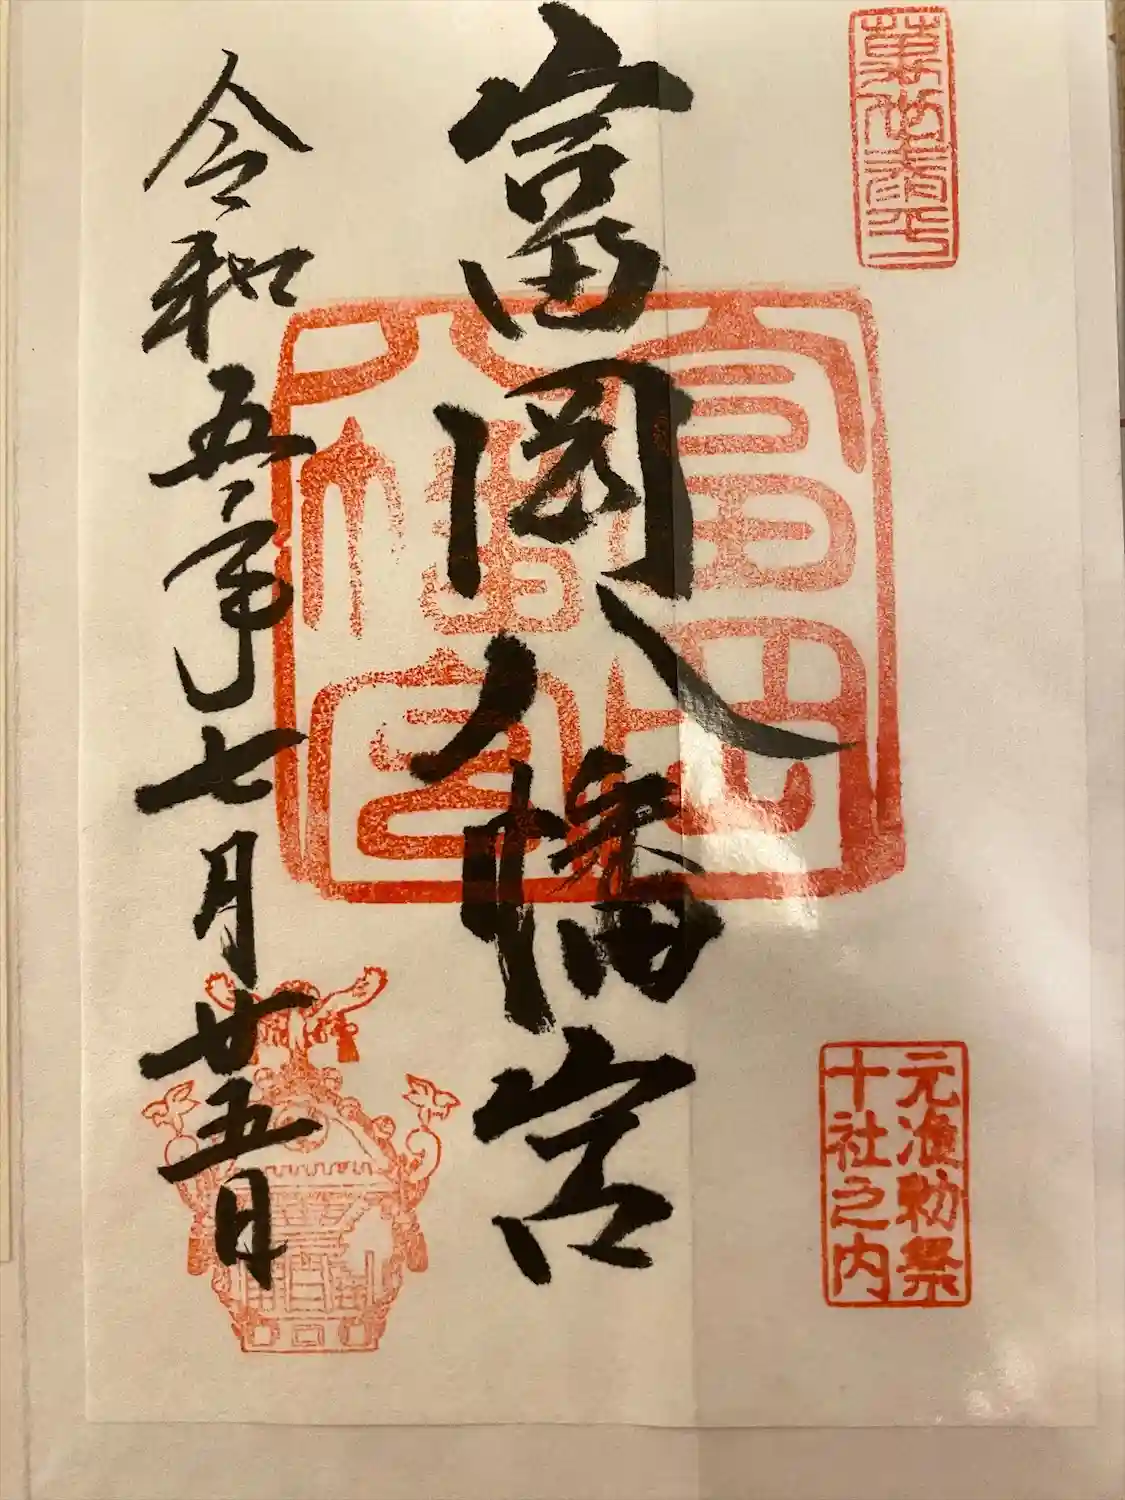 元准勅祭
十社之内
富岡八幡宮
富岡
八幡宮
令和五年七月廿五日